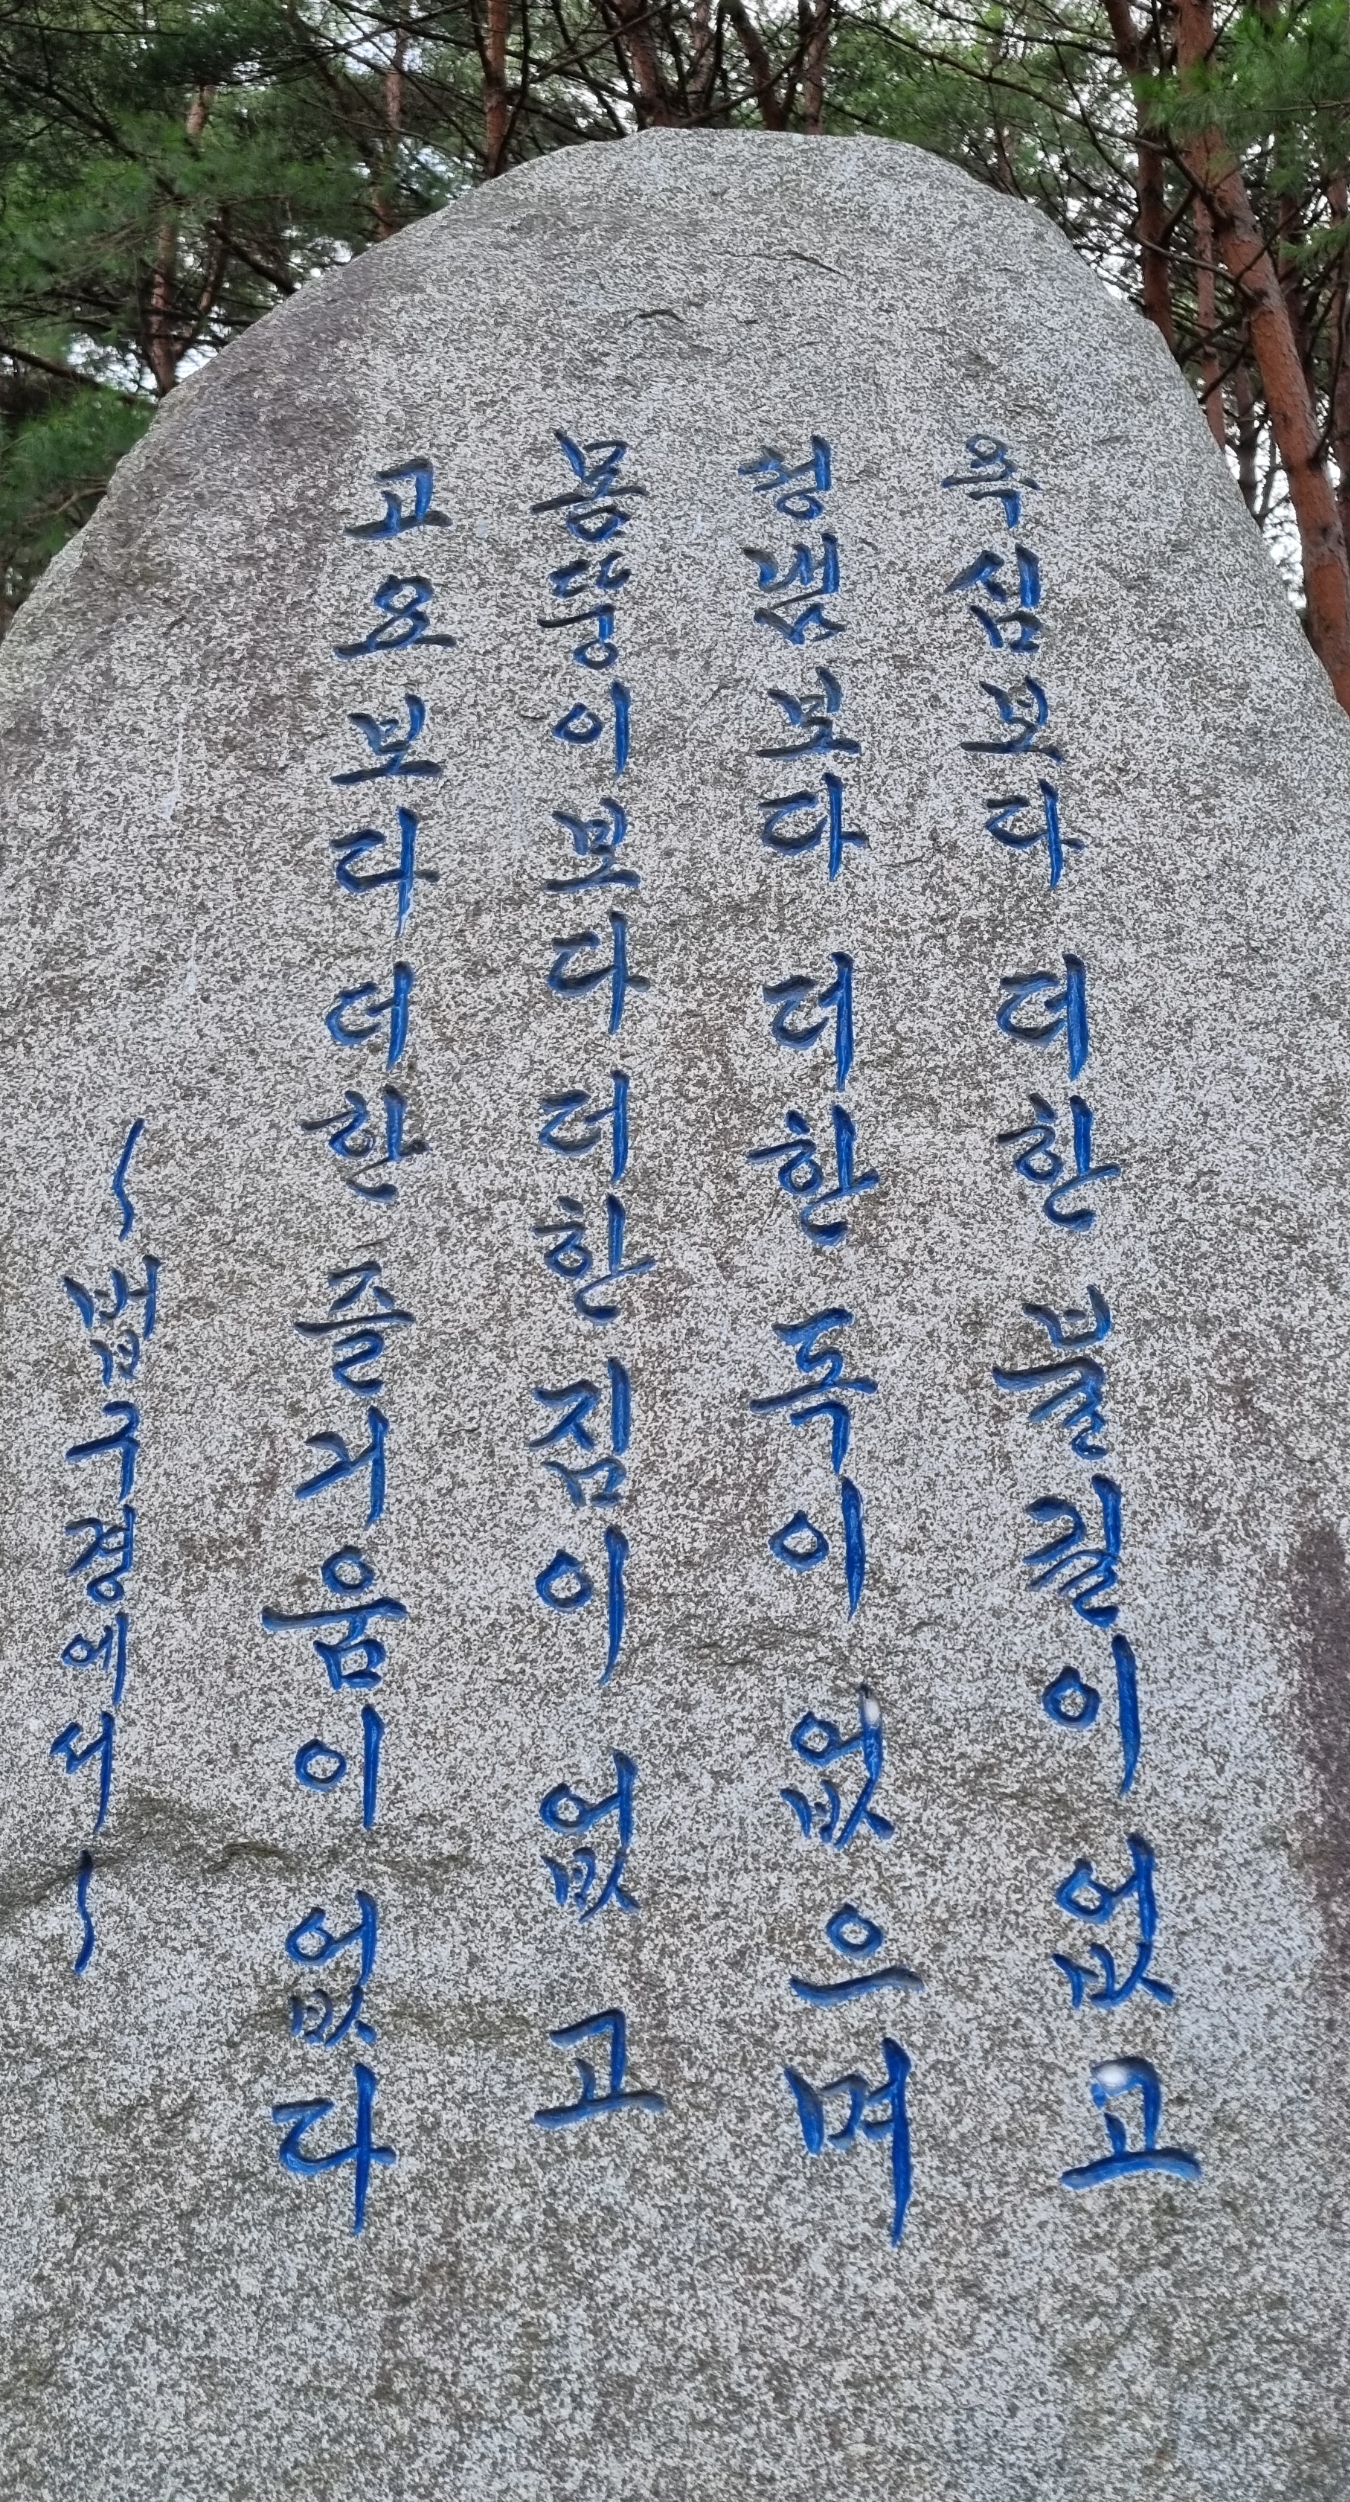 욕심보다 더한 불길이 없고
성냄보다 더한 독이 없으며
몸뚱이보다 더한 짐이 없고
고요보다 더한 즐거움이 없다
~법구경에서~